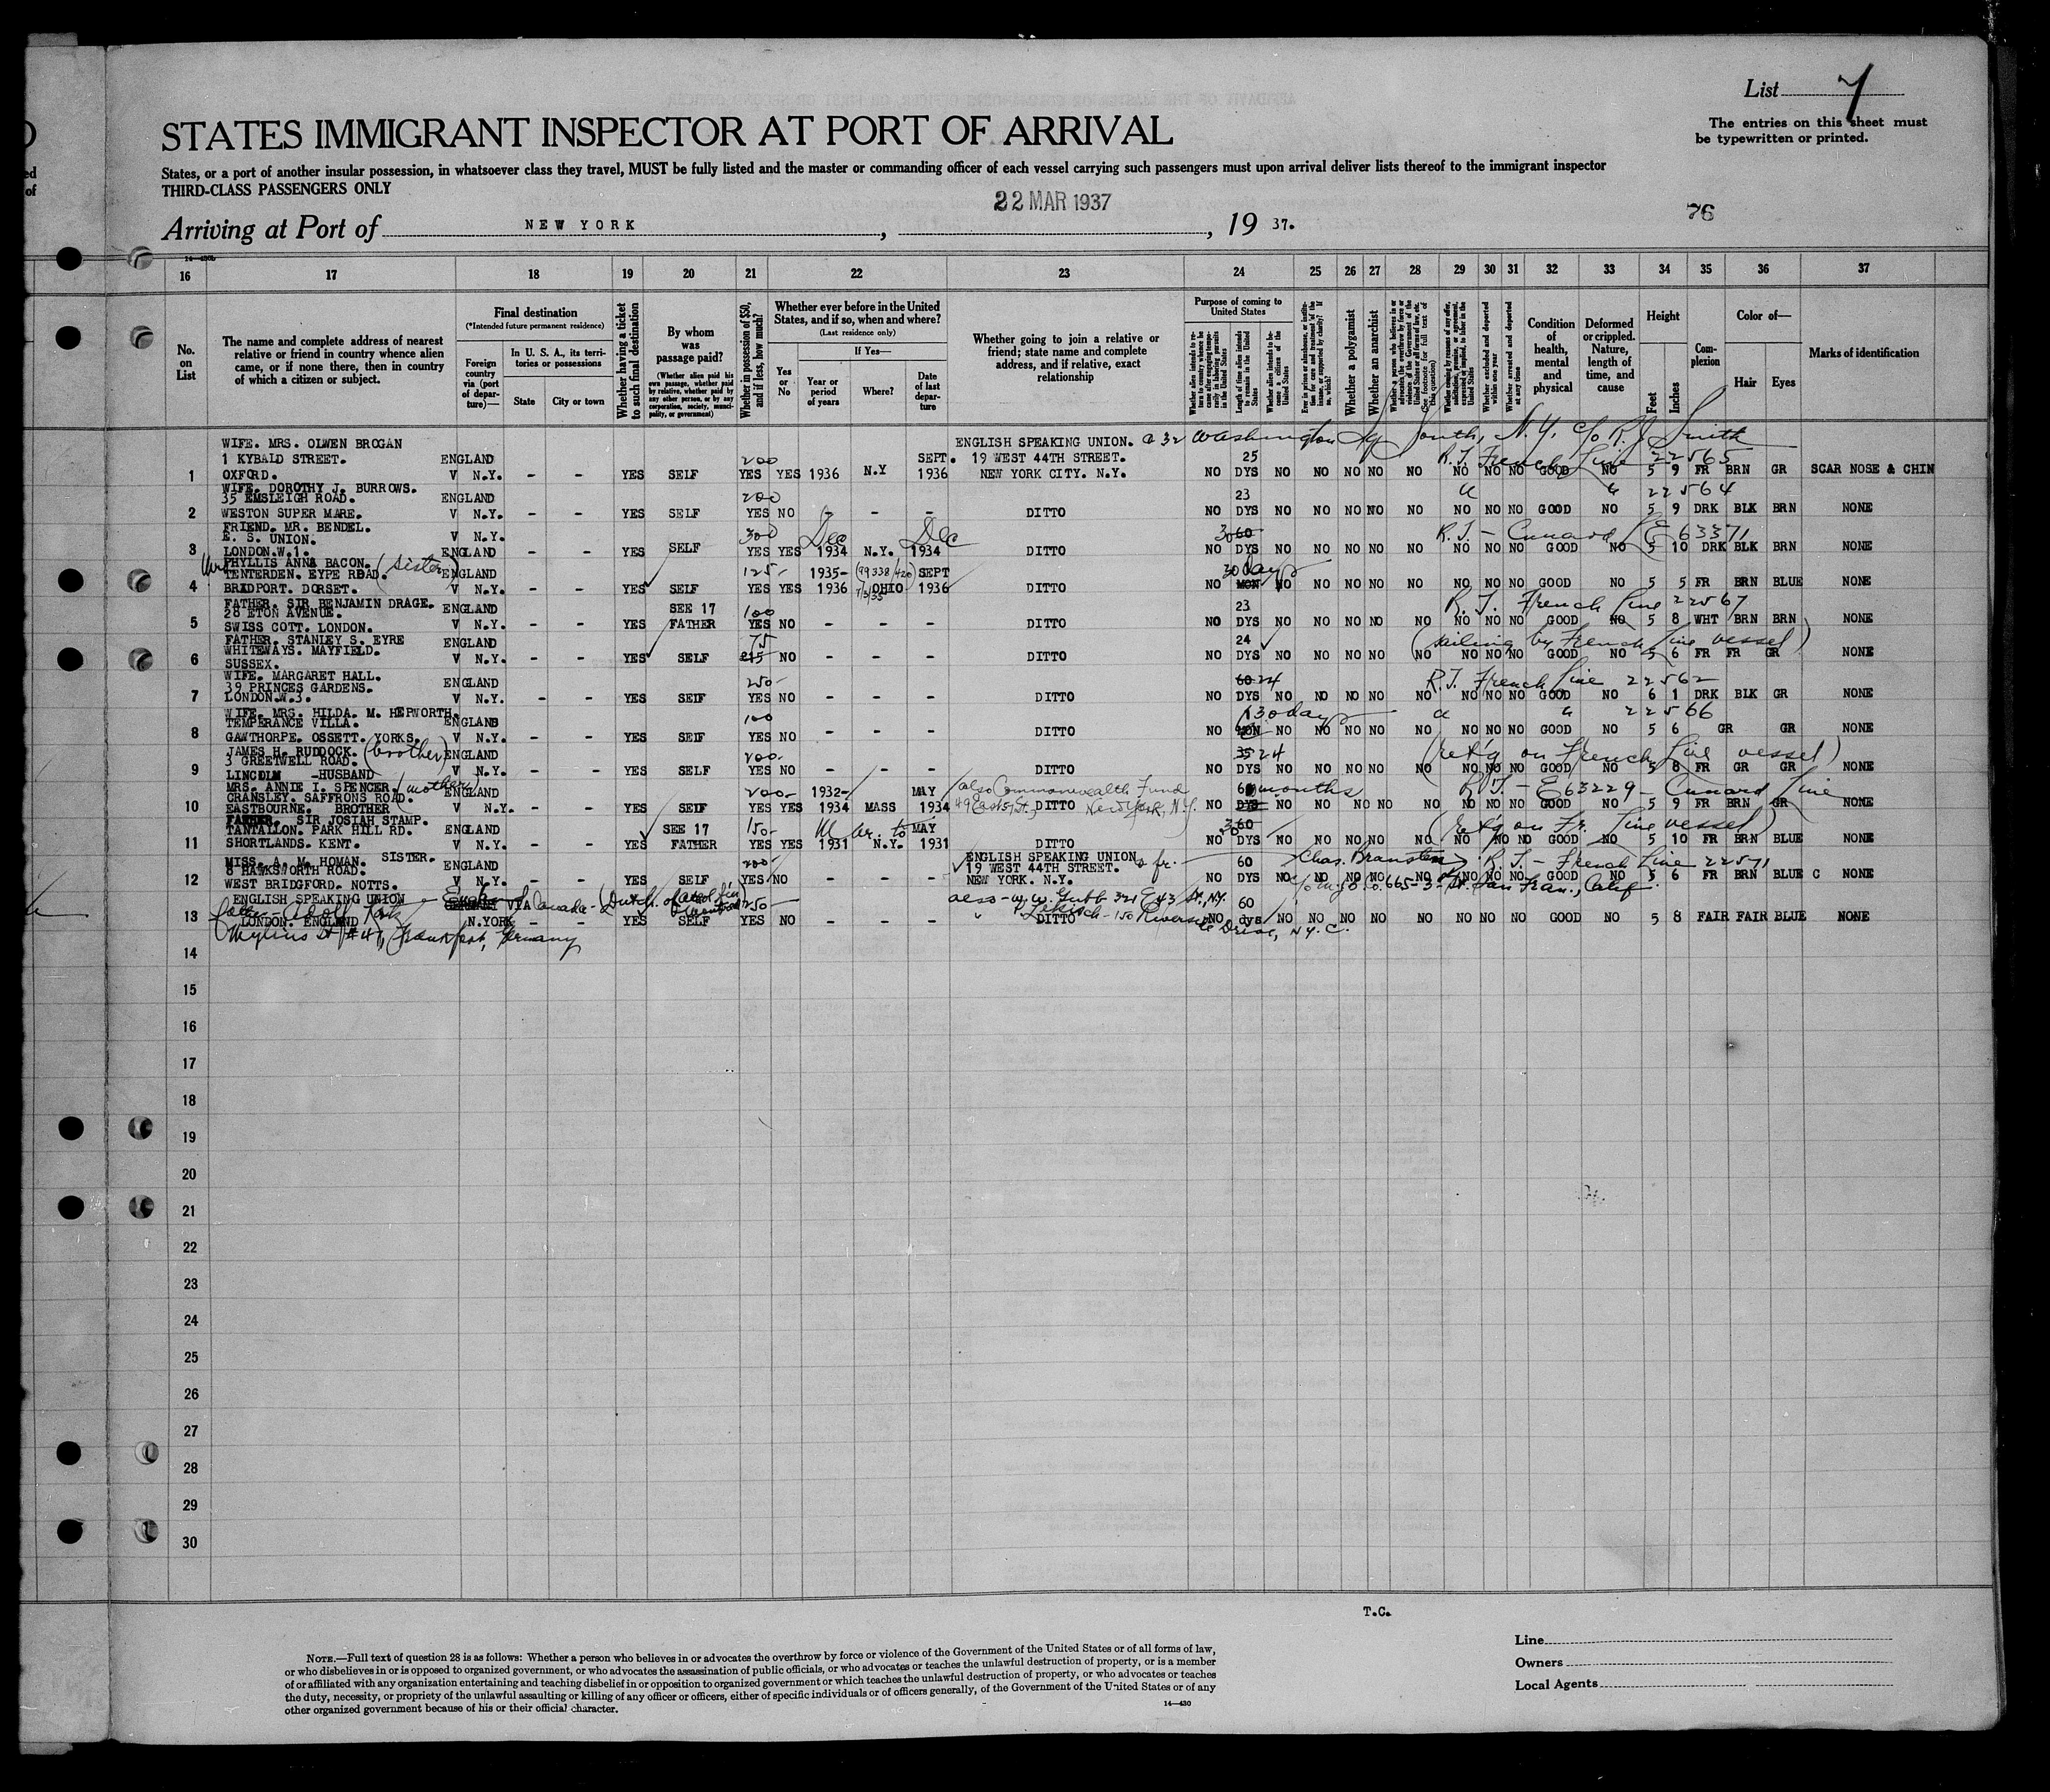 List 7
The entries on this sheet must
be typewritten or printed.
STATES IMMIGRANT INSPECTOR AT PORT OF ARRIVAL
States, or a port of another insular possession, in whatsoever class they travel, MUST be fully listed and the master or commanding officer of each vessel carrying such passengers must upon arrival deliver lists thereof to the immigrant inspector
THIRD-CLASS PASSENGERS ONLY
22 MAR 1937
76
Arriving at Port of NEW YORK, , 19 37.
16 17 18 19 20 21 22 23 24 25 26 27 28 29 30 31 32 33 34 35 36 37
No. on List
The name and complete address of nearest relative or friend in country whence alien came, or if none there, then in country of which a citizen or subject.
Final destination
(*Intended future permanent residence)
Foreign country via (port of departure)—
In U. S. A., its territories or possessions
State
City or town
Whether having a ticket to such final destination
By whom was passage paid?
(Whether alien paid his own passage, whether paid by relative, whether paid by any other person, or by any corporation, society, municipality, or government)
Whether in possession of $50, and if less, how much?
Whether ever before in the United States, and if so, when and where?
(Last residence only)
Yes or No
If Yes—
Year or period of years
Where?
Date of last departure
Whether going to join a relative or friend; state name and complete address, and if relative, exact relationship
Purpose of coming to United States
Length of time alien intends to remain in the United States
Whether a polygamist
Whether an anarchist
Whether arrested and deported at any time
Condition of health, mental and physical
Deformed or crippled. Nature, length of time, and cause
Height
Feet
Inches
Complexion
Color of—
Hair
Eyes
Marks of identification
WIFE. MRS. OLWEN BROGAN ENGLISH SPEAKING UNION. 32 Washington Sq South, N.Y. c/o R.J. Smith
1 KYBALD STREET. ENGLAND 200 SEPT. 19 WEST 44TH STREET. 25 R.T. French Line 22565
1 OXFORD. V N.Y. - - YES SELF YES YES 1936 N.Y 1936 NEW YORK CITY. N.Y. NO DYS NO NO NO NO NO NO NO NO GOOD NO 5 9 FR BRN GR SCAR NOSE & CHIN
WIFE. DOROTHY J. BURROWS.
35 EMSLEIGH ROAD. ENGLAND 200 23 " " 22564
2 WESTON SUPER MARE. V N.Y. - - YES SELF YES NO - - - DITTO NO DYS NO NO NO NO NO NO NO NO GOOD NO 5 9 DRK BLK BRN NONE
FRIEND. MR. BENDEL.
E. S. UNION. V N.Y. 300 Dec Dec 30 60 R.T. - Cunard E 63371
3 LONDON.W.1. ENGLAND - - YES SELF YES YES 1934 N.Y. 1934 DITTO NO DYS NO NO NO NO NO NO NO NO GOOD NO 5 10 DRK BLK BRN NONE
PHYLLIS ANNA BACON. (sister)
TENTERDEN. EYPE ROAD. ENGLAND 125- 1935- (99338/420) SEPT 30 days
4 BRIDPORT. DORSET. V N.Y. - - YES SELF YES YES 1936 OHIO 1936 DITTO NO MON NO NO NO NO NO NO NO NO GOOD NO 5 5 FR BRN BLUE NONE
FATHER. SIR BENJAMIN DRAGE.
28 ETON AVENUE. ENGLAND SEE 17 100 23 R.T. French Line 22567
5 SWISS COTT. LONDON. V N.Y. - - YES FATHER YES NO - - - DITTO NO DYS NO NO NO NO NO NO NO NO GOOD NO 5 8 WHT BRN BRN NONE
FATHER. STANLEY S. EYRE ENGLAND 75 24 (sailing by French Line vessel)
WHITEWAYS. MAYFIELD.
6 SUSSEX. V N.Y. - - YES SELF NO - - - DITTO NO DYS NO NO NO NO NO NO NO NO GOOD NO 5 6 FR FR GR NONE
WIFE. MARGARET HALL.
39 PRINCES GARDENS. ENGLAND 250- 60 24 R.T. French Line 22562
7 LONDON.W.3. V N.Y. - - YES SELF YES NO - - - DITTO NO DYS NO NO NO NO NO NO NO NO GOOD NO 6 1 DRK BLK GR NONE
WIFE. MRS. HILDA. M. HEPWORTH.
TEMPERANCE VILLA. ENGLAND 100 30 days " " 22566
8 GAWTHORPE. OSSETT. YORKS. V N.Y. - - YES SELF YES NO - - - DITTO NO MON NO NO NO NO NO NO NO NO GOOD NO 5 6 GR GR NONE
JAMES H. RUDDOCK. (brother) ENGLAND
3 GREETWELL ROAD. 200- 35 24 (ret'g on French Line vessel)
9 LINCOLN -HUSBAND V N.Y. - - YES SELF YES NO - - - DITTO NO DYS NO NO NO NO NO NO NO NO GOOD NO 5 8 FR GR GR NONE
MRS. ANNIE I. SPENCER. (mother)
CRANSLEY. SAFFRONS ROAD. ENGLAND 200- 1932- MAY also Commonwealth Fund 6 months R.T. - E63229 - Cunard Line
10 EASTBOURNE. BROTHER V N.Y. - - YES SELF YES YES 1934 MASS 1934 DITTO New York, N.Y. NO DYS NO NO NO NO NO NO NO NO GOOD NO 5 9 FR BRN GR NONE
FATHER. SIR JOSIAH STAMP.
TANTALLON. PARK HILL RD. ENGLAND SEE 17 150- Mar. to MAY 30 60 (ret'g on Fr. Line vessel)
11 SHORTLANDS. KENT. V N.Y. - - YES FATHER YES YES 1931 N.Y. 1931 DITTO NO DYS NO NO NO NO NO NO NO NO GOOD NO 5 10 FR BRN BLUE NONE
MISS. A. M. HOMAN. SISTER. ENGLISH SPEAKING UNION
8 HAWKSWORTH ROAD. ENGLAND 200- 19 WEST 44TH STREET. 60 Chas. Bransten R.T. - French Line 22571
12 WEST BRIDGFORD. NOTTS. V N.Y. - - YES SELF YES NO - - - NEW YORK. N.Y. NO DYS NO NO NO NO NO NO NO NO GOOD NO 5 6 FR BRN BLUE C NONE
665-3 St. San Fran., Calif.
ENGLISH SPEAKING UNION VIA Canada 321 E 43 St., N.Y. 60
13 LONDON. ENGLAND N.YORK - - YES SELF YES NO - - - DITTO NO dys NO NO NO NO NO NO NO NO GOOD NO 5 8 FAIR FAIR BLUE NONE
father - Adolf Katz 150 Riverside Drive, N.Y.C.
Mylius St #41, Frankfort, Germany
14
15
16
17
18
19
20
21
22
23
24
25
26
27
28
29
30
T.C.
NOTE.—Full text of question 28 is as follows: Whether a person who believes in or advocates the overthrow by force or violence of the Government of the United States or of all forms of law,
or who disbelieves in or is opposed to organized government, or who advocates the assassination of public officials, or who advocates or teaches the unlawful destruction of property, or is a member
of or affiliated with any organization entertaining and teaching disbelief in or opposition to organized government or which teaches the unlawful destruction of property, or who advocates or teaches
the duty, necessity, or propriety of the unlawful assaulting or killing of any officer or officers, either of specific individuals or of officers generally, of the Government of the United States or of any
other organized government because of his or their official character.
14—430
Line
Owners
Local Agents